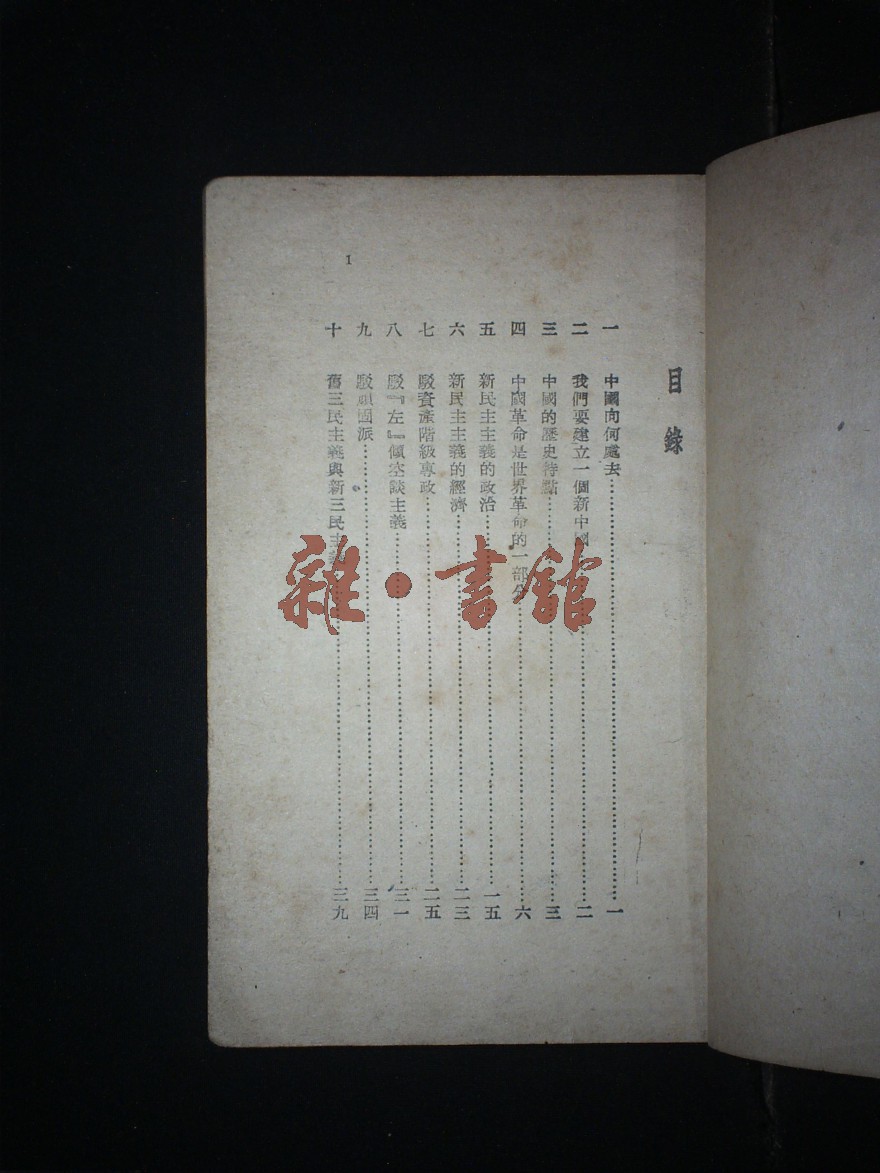 目錄
一 中國向何處去 一
二 我們要建立一個新中國 二
三 中國的歷史特點 三
四 中國革命是世界革命的一部分 六
五 新民主主義的政治 一五
六 新民主主義的經濟 二三
七 駁資產階級專政 二五
八 駁『左』傾空談主義 三一
九 駁頑固派 三四
十 舊三民主義與新三民主義 三九
1
雜·書館